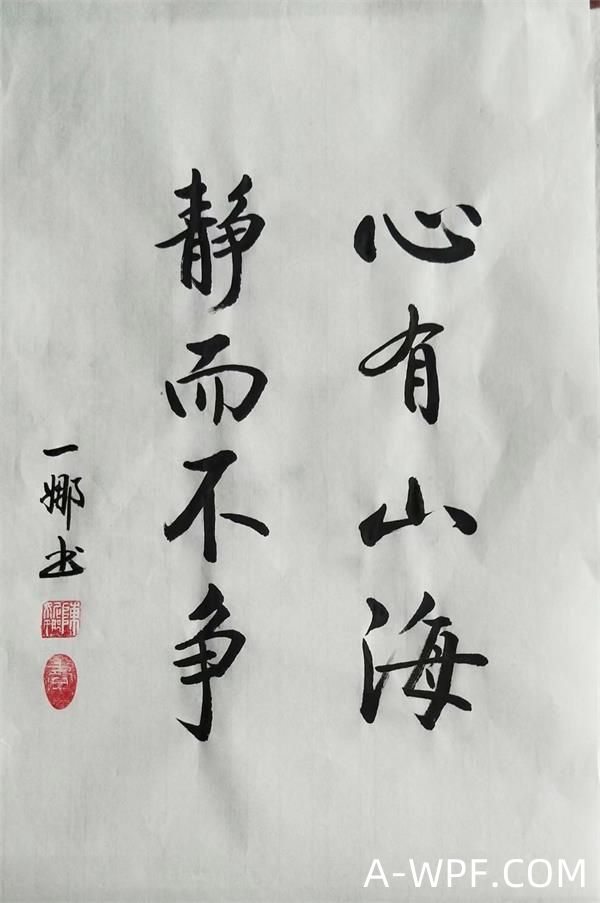 心有山海
静而不争
一娜书
A-WPF.COM